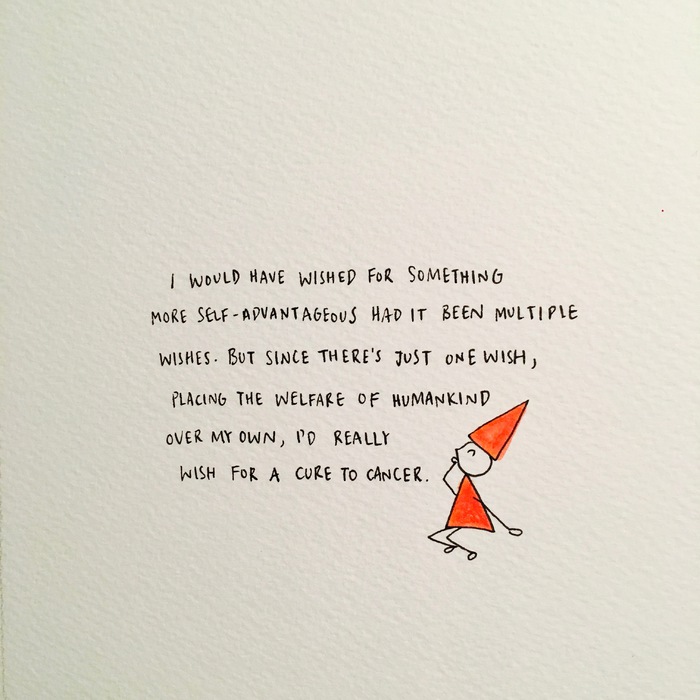 I WOULD HAVE WISHED FOR SOMETHING
MORE SELF-ADVANTAGEOUS HAD IT BEEN MULTIPLE
WISHES. BUT SINCE THERE'S JUST ONE WISH,
PLACING THE WELFARE OF HUMANKIND
OVER MY OWN, I'D REALLY
WISH FOR A CURE TO CANCER.